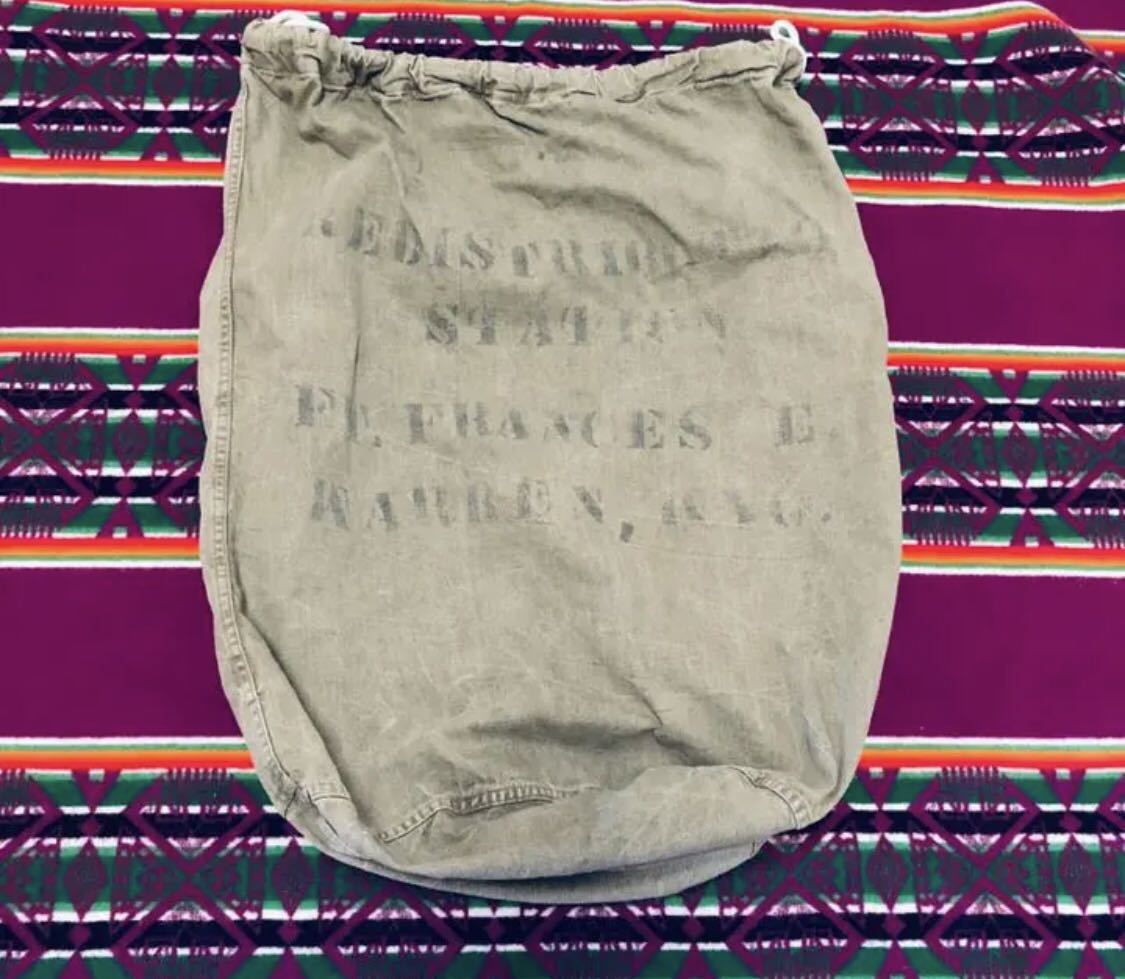 REDISTRIBUTION
STATION
FT. FRANCES E.
WARREN, WYO.